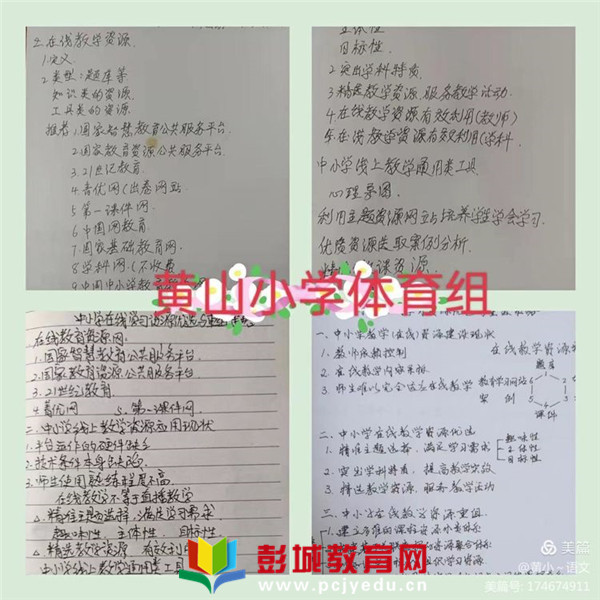 在线教学资源
1.定义
2.类型:题库等
知识类的资源
工具类的资源
推荐1.国家智慧教育公共服务平台
2.国家教育资源公共服务平台
3.21世纪教育
4.青优网(出卷网站
5.第一课件网
6.中国网教育
7.国家基础教育网
8.学科网(不收费
9.中国中小学教育
主体性
目标性
2.突出学科特质
3.精选教学资源,服务教学活动
4.在线教学资源有效利用(教师)
5.在线教学资源有效利用(学科
中小学线上教学通用类工具
心理导图
利用主题资源网站培养学生学会学习
优质资源选取案例分析
课资源
黄山小学体育组
中小学在线学习资源优选与
在线教育资源网
1.国家智慧教育公共服务平台
2.国家教育资源公共服务平台
3.21世纪教育
4.青优网 5.第一课件网
二、中小学线上教学资源应用现状
1.平台运作的硬件缺乏
2.技术条件本身的缺陷
3.师生使用熟练程度不高
在线教学不等于直播教学
精准主题选择,满足学习需求
趣味性,主体性,目标性
精选教学资源
中小学线上教学通用类工具
一、中小学教学(在线)资源建设现状
1.教师浪潮控制
2.在线教学内容采纳
3.师生难以完全适应在线教学
在线教学资源
题库
教育学习网站
案例
课件
二、中小学在线教学资源优选
1.精准主题选择,满足学习需求
趣味性
主体性
目标性
2.突出学科特质,提高教学实效
3.精选教学资源,服务教学活动
三、中小学在线教学资源重组
彭城教育网
www.pcjyedu.cn
美篇
@黄小~语文
美篇号: 174674911